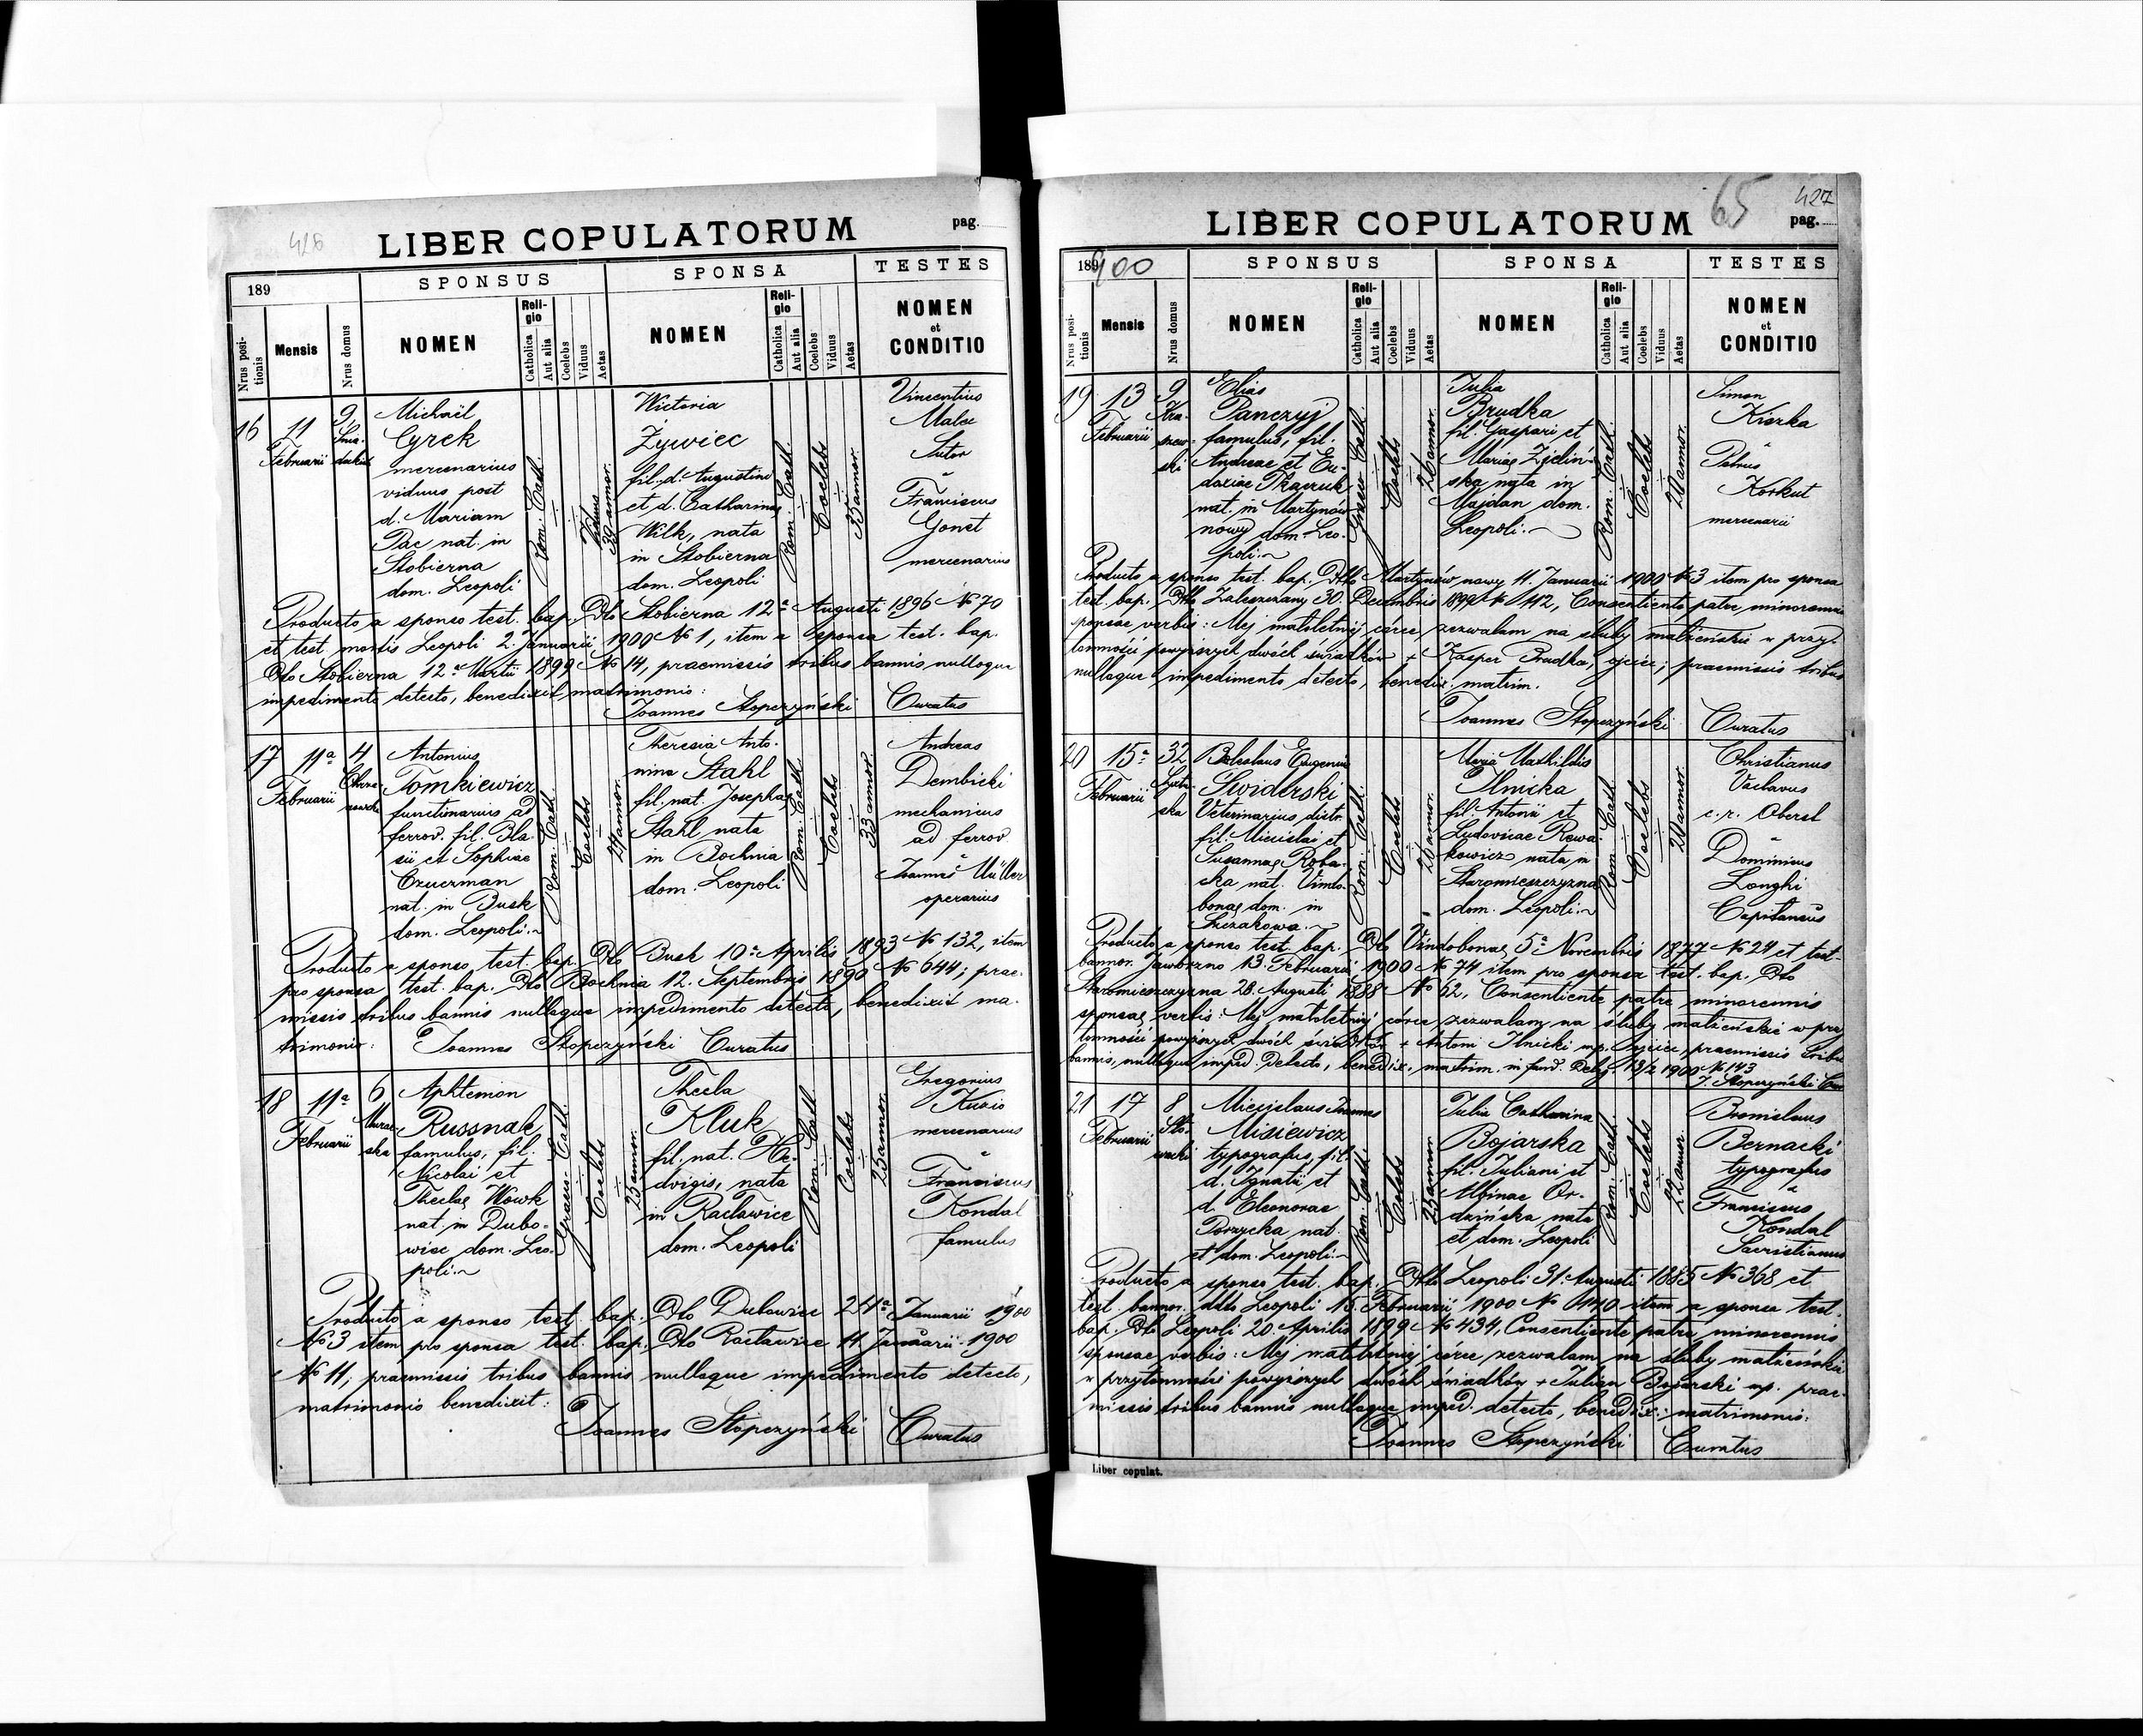 426
LIBER COPULATORUM
pag.
189
SPONSUS
SPONSA
TESTES
Nrus positionis
Mensis
Nrus domus
NOMEN
Religio
Catholica
Aut alia
Coelebs
Viduus
Aetas
NOMEN
Religio
Catholica
Aut alia
Coelebs
Viduus
Aetas
NOMEN
et
CONDITIO
16
11
Februarii
9
Michaël
Cyrek
mercenarius
viduus post
d. Mariam
Pac nat. in
Stobierna
dom. Leopoli
Rom. Cath.
Viduus
39 annor.
Victoria
Żywiec
fil. d. Augustini
et d. Catharinae
Wilk, nata
in Stobierna
dom. Leopoli
Rom. Cath.
Coelebs
35 annor.
Vincentius
Malec
Sutor
Franciscus
Gonet
mercenarius
Producto a sponso test. bap. Dto Stobierna 12a Augusti 1896 No 70
et test mortis Leopoli 2. Januarii 1900 No 1, item a sponsa test. bap.
Dto Stobierna 12a Martii 1899 No 14, praemissis tribus bannis nulloque
impedimento detecto, benedixit matrimonio:
Joannes Stopczyński Curatus
17
11a
Februarii
4
Antonius
Tomkiewicz
functionarius ad
ferrov. fil. Bla-
sii et Sophiae
Czuerman
nat. in Busk
dom. Leopoli
Rom. Cath.
Coelebs
Theresia Anto-
nina Stahl
fil. nat. Josephae
Stahl nata
in Bochnia
dom. Leopoli
Rom. Cath.
Coelebs
33 annor.
Andreas
Dembicki
mechanicus
ad ferrov.
Joannes Müller
operarius
Producto a sponso test. bap. Dto Busk 10a Aprilis 1893 No 132, item
pro sponsa test. bap. Dto Bochnia 12. Septembris 1890 No 644; prae-
missis tribus bannis nulloque impedimento detecto, benedixit ma-
trimonio: Joannes Stopczyński Curatus
18
11a
Februarii
6
Aphtemion
Russnak
famulus, fil.
Nicolai et
Theclae Wowk
nat. in Dubo-
wiec dom. Leo-
poli
Graeco Cath.
Coelebs
25 annor.
Thecla
Kluk
fil. nat. He-
dvigis, nata
in Racławice
dom. Leopoli
Rom. Cath.
Coelebs
25 annor.
Gregorius
mercenarius
Franciscus
Kondal
famulus
Producto a sponso test bap. Dto Dubowiec 24a Januarii 1900
No 3 item pro sponsa test. bap. Dto Racławice 11. Januarii 1900
No 11; praemissis tribus bannis nulloque impedimento detecto,
matrimonio benedixit:
Joannes Stopczyński Curatus
65
427
LIBER COPULATORUM
pag.
189
900
SPONSUS
SPONSA
TESTES
Nrus positionis
Mensis
Nrus domus
NOMEN
Religio
Catholica
Aut alia
Coelebs
Viduus
Aetas
NOMEN
Religio
Catholica
Aut alia
Coelebs
Viduus
Aetas
NOMEN
et
CONDITIO
19
13
Februarii
9
Kra-
szew-
ski
Elias
Panczyj
famulus, fil.
Andreae et Eu-
doxiae Tkaczuk
nat. in Martynów
nowy dom. Leo-
poli
Graeco Cath.
Coelebs
26 annor.
Julia
Brudka
fil. Gaspari et
Mariae Zidin-
ska nata in
Majdan dom.
Leopoli
Rom. Cath.
Coelebs
20 annor.
Simon
Kiszka
Petrus
Korkut
mercenarii
Producto a sponso test. bap. Dto Martynów nowy 11. Januarii 1900 No 3 item pro sponsa
test. bap. Dto Zaleszczany 30. Decembris 1899 No 112, Consentiente patre minorennis
sponsae verbis: Mej małoletniej córce zezwalam na śluby małżeńskie w przy-
tomności powyższych dwóch świadków + Kasper Brudka, ojciec; praemissis tribus
nulloque impedimento detecto, benedix. matrim.
Joannes Stopczyński Curatus
20
15a
Februarii
32
Boleslaus Eugenius
Świderski
Veterinarius distr.
fil. Miecislai et
Susannae Roba-
ska nat. Vindo-
bonae dom. in
Szczakowa
Rom. Cath.
Coelebs
Maria Mathildis
Ilnicka
fil. Antonii et
Ludovicae Rewa-
kowicz nata in
Staromieszczyzna
dom. Leopoli
Rom. Cath.
Coelebs
20 annor.
Christianus
Vaclavus
c. r. Oberst
Dominicus
Longhi
Capitaneus
Producto a sponso test. bap. Dto Vindobonae 5a Novembris 1877 No 24 et test.
bannor. Jaworzno 13. Februarii 1900 No 74 item pro sponsa test. bap. Dto
Staromieszczyzna 28. Augusti No 62, Consentiente patre minorennis
sponsae verbis: Mej małoletniej córce zezwalam na śluby małżeńskie w przy-
tomności powyższych dwóch świadków + Antoni Ilnicki mp. Ojciec, praemissis tribus
bannis, nulloque imped. detecto, benedix. matrim. in fund. Deleg. 13/2 1900 No 143
J. Stopczyński Cur
21
17
Februarii
8
Sło-
wacki
Miecislaus Joannes
Misiewicz
typografus, fil.
d. Ignatii et
d. Eleonorae
Porzycka nat.
et dom. Leopoli
Rom. Cath.
Coelebs
25 annor
Julia Catharina
Bojarska
fil. Juliani et
Albinae Or-
dzińska nata
et dom. Leopoli
Rom. Cath.
Coelebs
22 annor.
Bronislaus
Bernacki
typografus
Franciscus
Kondal
Sacristianus
Producto a sponso test. bap. Dto Leopoli 31. Augusti 1885 No 368 et
test. bannor. ddto Leopoli 15. Februarii 1900 No item a sponsa test.
bap. Dto Leopoli 20. Aprilis 1899 No 434, Consentiente patre minorennis
sponsae verbis: Mej małoletniej córce zezwalam na śluby małżeńskie
w przytomności powyższych dwóch świadków + Julian Bojarski mp. prae-
missis tribus bannis nulloque imped. detecto, benedix: matrimonio:
Joannes Stopczyński Curatus
Liber copulat.